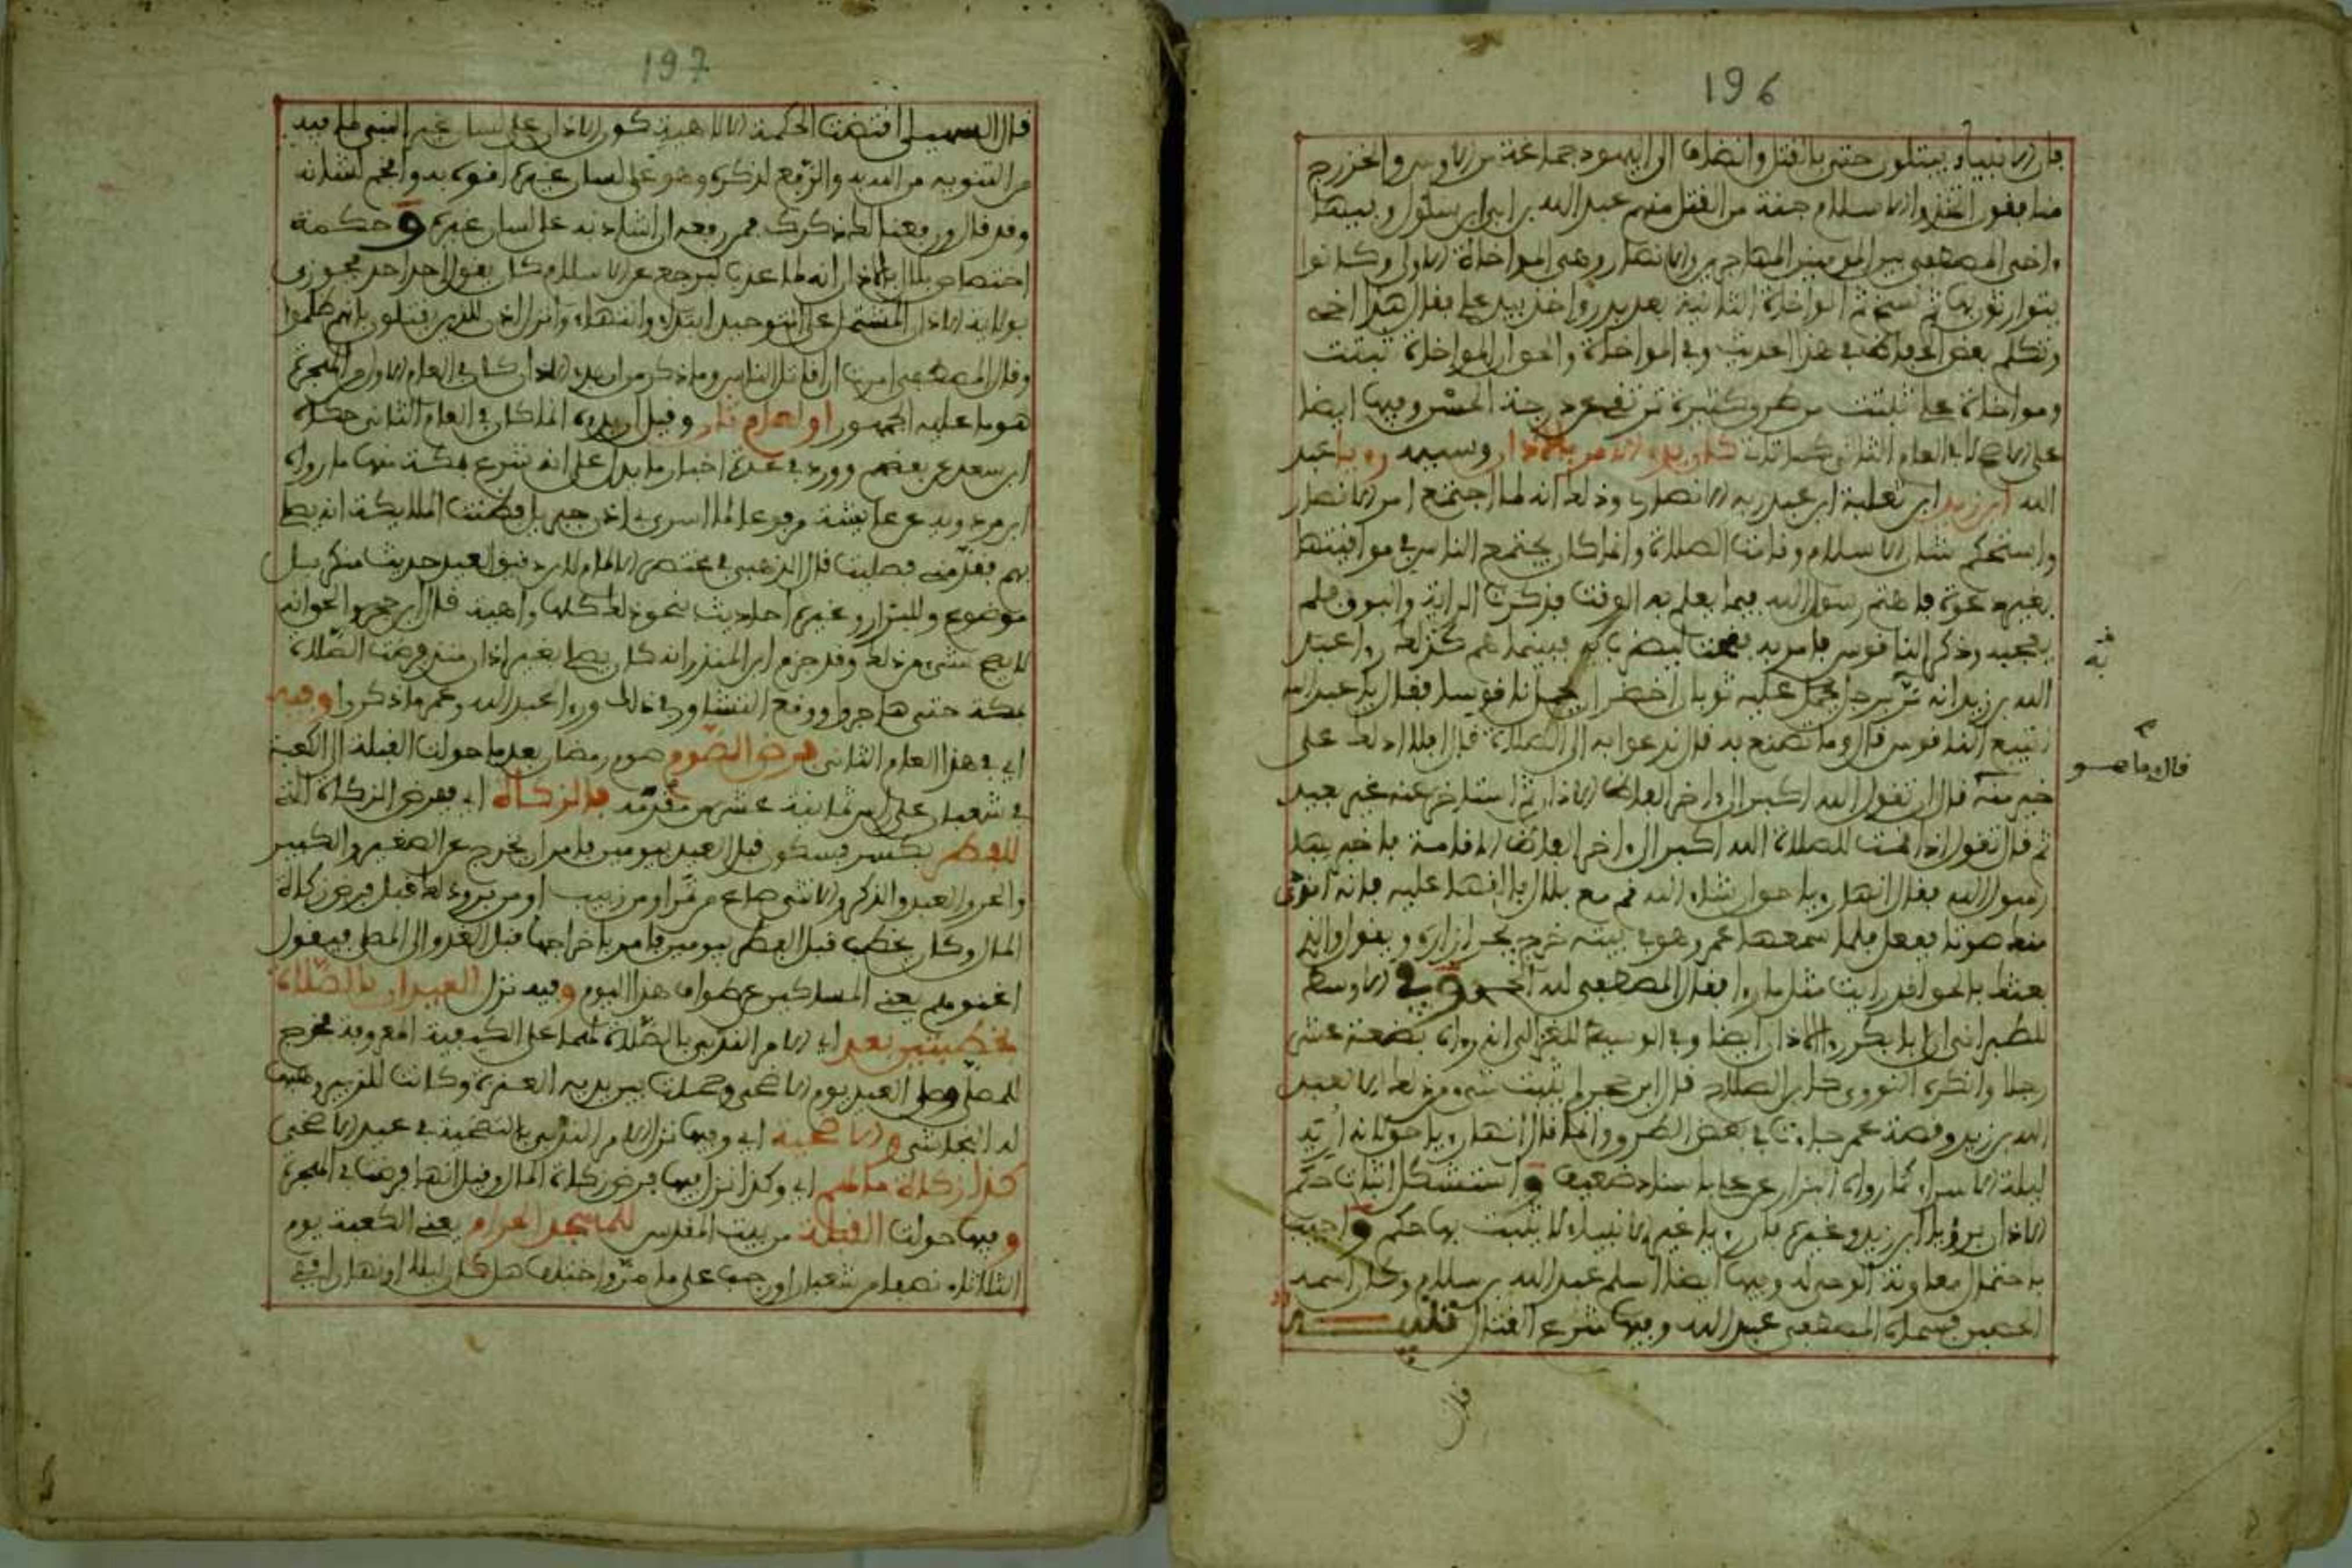 196
فإن الأنبياء يبتلون حتى بالقتل وانضاف إلى اليهود جماعة من الأوس والخزرج
منافقون اتخذوا الإسلام جنة من القتل منهم عبد الله بن أبي ابن سلول وبينها
واخى المصطفى بين المومنين المهاجرين والأنصار وهى المواخاة الأولى وكانوا
يتوارثون بها ثم نسخ ثم المواخاة الثانية بعد بدر واخذ بيد علي فقال هذا اخى
وتكلم بعض الحفاظ في هذا الحديث وفي المواخاة والحق ان المواخاة ثبتت
ومواخاة علي ثبتت من طرق كثيرة ترتفع عن درجة الحسن وفيها ايضا
على الأصح لا في العام الثاني كما قال كان بدء الأمر بالأذان وسببه رويا عبد
الله ابن زيد ابن ثعلبة ابن عبد ربه الأنصاري وذلك انه لما اجتمع امر الأنصار
واستحكم شان الإسلام وقامت الصلاة وانما كان يجتمع الناس في مواقيتها
بغير دعوة فاهتم رسول الله فيما يعلم به الوقت فذكرت الراية والبوق فلم
يعجبه وذكر الناقوس فامر به فنحت ليضرب به فبينما هم كذلك راى عبد
الله بن زيد انه مر به رجل عليه ثوبان اخضران يحمل ناقوسا فقال يا عبد الله
اتبيع الناقوس قال وما تصنع به قال ندعوا به الى الصلاة قال افلا ادلك على
قال وما هو
خير منه قال ان تقول الله اكبر الى اخر الفاظ الأذان ثم استاخر عنه غير بعيد
ثم قال تقول اذا اقمت للصلاة الله اكبر الى اخر الفاظ الإقامة فاخبر بها
رسول الله فقال انها رويا حق ان شاء الله قم مع بلال فالقها عليه فانه اندى
منك صوتا ففعل فلما سمعها عمر وهو في بيته خرج يجر ازاره ويقول والذي
بعثك بالحق لقد رايت مثل ما راى فقال المصطفى لله الحمد وفي الأوسط
للطبراني ان ابا بكر راى الأذان ايضا وفي الوسيط للغزالي انه رواه بضعة عشر
رجلا وانكره النووي كابن الصلاح قال ابن حجر لم يثبت شيء من ذلك الا لعبد
الله بن زيد وقصة عمر جاءت في بعض الطرق وانما قال انها رويا حق لأنه اريه
ليلة الإسراء كما رواه البزار عن علي باسناد ضعيف واستشكل اثبات حكم
الأذان برؤيا ابن زيد وغيره فان رويا غير الأنبياء لا يثبت بها حكم واجيب
باحتمال مقارنة الوحي له وفيها ايضا اسلم عبد الله بن سلام وكان اسمه
الحصين فسماه المصطفى عبد الله وفيها شرع القتال
قال
197
قال السهيلي اقتضت الحكمة الإلاهية كون الأذان على لسان غير النبي لما فيه
من التنويه من الله به والرفع لذكره وهو على لسان غيره افوه به وافخم لشانه
وقد قال ورفعنا لك ذكرك فمن رفعه ان اشاد به على لسان غيره و حكمة
اختصاص بلال بالأذان انه لما عذب ليرجع عن الإسلام كان يقول احد احد فجوزي
بولاية الأذان المشتمل على التوحيد ابتداء وانتهاء وانزل اذن للذين يقتلون بانهم ظلموا
وقال المصطفى امرت ان اقاتل الناس وما ذكر من ان بدء الأذان كان في العام الأول من الهجرة
هو ما عليه الجمهور او لعام ثان وقيل ان بدءه انما كان في العام الثاني حكاه
ابن سعد عن بعضهم وورد في عدة اخبار ما يدل على انه شرع بمكة منها ما رواه
ابن مردويه عن عايشة مرفوعا لما اسري بي اذن جبريل فظنت الملايكة انه يصلي
بهم فقدمني فصليت قال الذهبي في مختصر الإلمام لابن دقيق العيد حديث منكر بل
موضوع وللبزار وغيره احاديث بنحو ذلك كلها واهية قال ابن حجر والحق انه
لا يصح شيء من ذلك وقد جزم ابن المنذر انه كان يصلي بغير اذان منذ فرضت الصلاة
بمكة حتى هاجر ووقع التشاور في ذلك وراى عبد الله وعمر ما ذكروا وفيه
اي في هذا العام الثاني فرض الصوم صوم رمضان بعد ما حولت القبلة الى الكعبة
في شعبان على راس ثمانية عشر من مقدمه فالزكاة اي ففرض الزكاة التي
للفطر بكسر فسكون قبل العيد بيومين فامر ان تخرج عن الصغير والكبير
والحر والعبد والذكر والأنثى صاع من تمر او من زبيب او من بر وذلك قبل فرض زكاة
المال وكان يخطب قبل الفطر بيومين فيامر باخراجها قبل الغدو الى المصلى فيقول
اغنوهم يعني المساكين عن طواف هذا اليوم وفيه نزل العيدان بالصلاة
بخطبتين بعد اي الأمر الندبي بالصلاة لهما على الكيفية المعروفة فخرج
للمصلى وصلى العيد يوم الأضحى وحملت بين يديه العنزة وكانت للزبير وهبها
له النجاشي والأضحية اي وفيها نزل الأمر الندبي بالتضحية في عيد الأضحى
كذا زكاة مالهم اي وكذا نزل فيها فرض زكاة المال وقيل انها فرضت في الهجرة
وفيها حولت القبلة من بيت المقدس للمسجد الحرام يعني الكعبة يوم
الثلاثاء نصف شعبان او رجب على ما مر واختلف هل كان ليلا او نهارا في